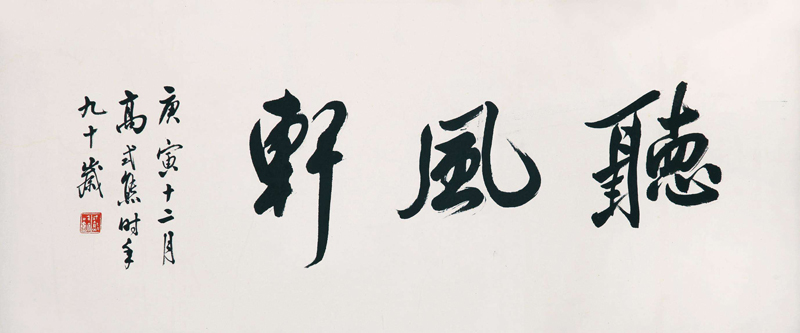 聽風軒
庚寅十二月
高式熊时年
九十歲